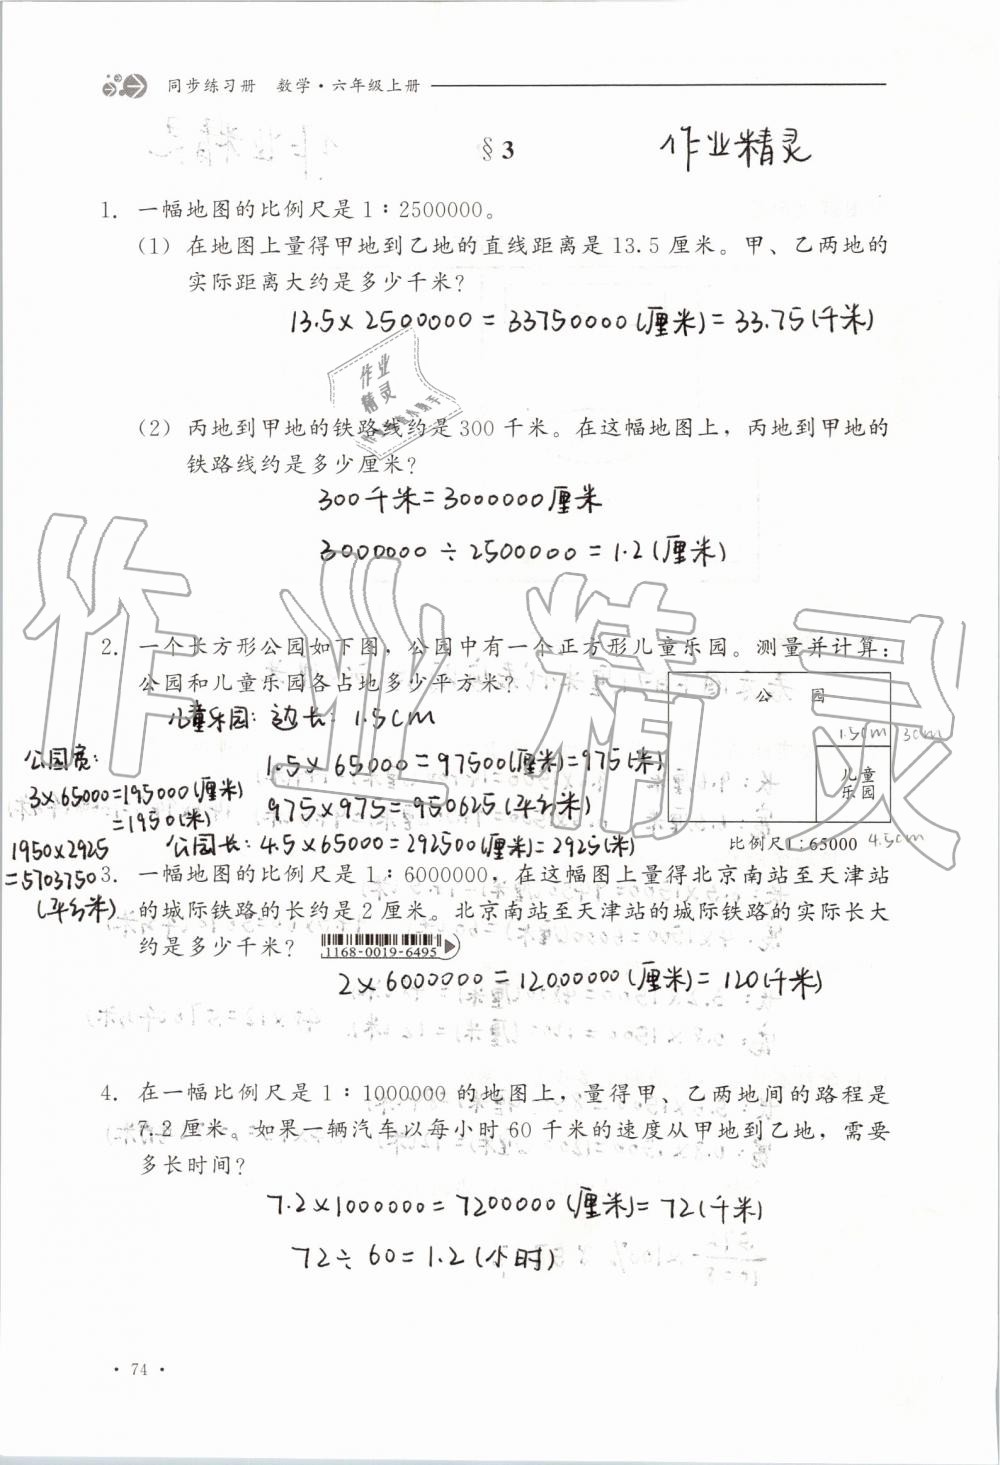 同步练习册 数学·六年级上册
§3
作业精灵
1. 一幅地图的比例尺是1∶2500000。
(1) 在地图上量得甲地到乙地的直线距离是13.5厘米。甲、乙两地的
实际距离大约是多少千米?
13.5×2500000=33750000(厘米)=33.75(千米)
作业
精灵
(2) 丙地到甲地的铁路线约是300千米。在这幅地图上，丙地到甲地的
铁路线约是多少厘米?
300千米=3000000厘米
3000000÷2500000=1.2(厘米)
作业精灵
2. 一个长方形公园如下图，公园中有一个正方形儿童乐园。测量并计算:
公园和儿童乐园各占地多少平方米?
儿童乐园: 边长: 1.5cm
公园
1.5cm 3cm
儿童
乐园
比例尺1∶65000 4.5cm
公园宽:
3×65000=195000(厘米)
=1950(米)
1.5×65000=97500(厘米)=975(米)
975×975=950625(平方米)
公园长: 4.5×65000=292500(厘米)=2925(米)
1950×2925
=5703750
(平方米)
3. 一幅地图的比例尺是1∶6000000，在这幅图上量得北京南站至天津站
的城际铁路的长约是2厘米。北京南站至天津站的城际铁路的实际长大
约是多少千米?
1168-0019-6495
2×6000000=12000000(厘米)=120(千米)
4. 在一幅比例尺是1∶1000000的地图上，量得甲、乙两地间的路程是
7.2厘米。如果一辆汽车以每小时60千米的速度从甲地到乙地，需要
多长时间?
7.2×1000000=7200000(厘米)=72(千米)
72÷60=1.2(小时)
·74·